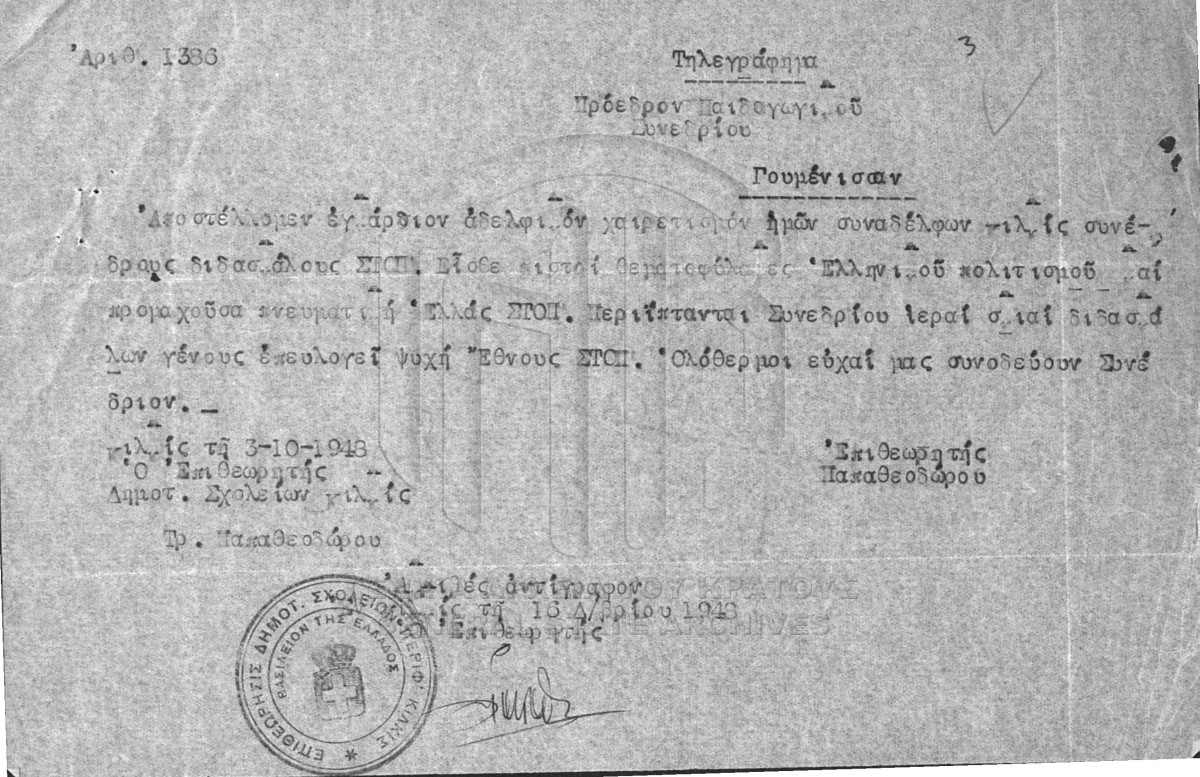 Ἀριθ. 1386
3
Τηλεγράφημα
Πρόεδρον Παιδαγωγικοῦ
Συνεδρίου
Γουμένισσαν
Ἀποστέλλομεν ἐγκάρδιον ἀδελφικόν χαιρετισμόν ἡμῶν συναδέλφων Κιλκίς συνέ-
δρους διδασκάλους ΣΤΟΠ. Εἶσθε πιστοί θεματοφύλακες Ἑλληνικοῦ πολιτισμοῦ καί
προμαχοῦσα πνευματική Ἑλλάς ΣΤΟΠ. Περιΐπτανται Συνεδρίου ἱεραί σκιαί διδασκά
λων γένους ἐπευλογεῖ ψυχή Ἔθνους ΣΤΟΠ. Ὁλόθερμοι εὐχαί μας συνοδεύουν Συνέ
δριον.
Κιλκίς τῇ 3-10-1948
Ἐπιθεωρητής
Ὁ Ἐπιθεωρητής
Παπαθεοδώρου
Δημοτ. Σχολείων Κιλκίς
Τρ. Παπαθεοδώρου
Ἀκριβές ἀντίγραφον
Κιλκίς τῇ 16 Δ/βρίου 1948
Ἐπιθεωρητής
ΕΠΙΘΕΩΡΗΣΙΣ ΔΗΜΟΤ. ΣΧΟΛΕΙΩΝ ΠΕΡΙΦ. ΚΙΛΚΙΣ
ΒΑΣΙΛΕΙΟΝ ΤΗΣ ΕΛΛΑΔΟΣ